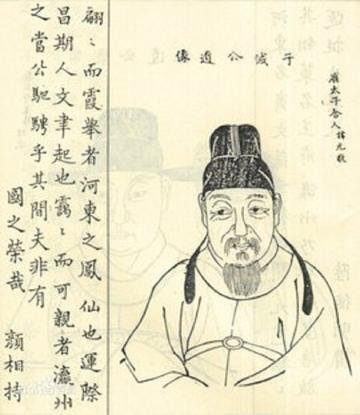 唐太子舍人諱元敬
子誠公遺像
翩々而霞舉者河東之鳳仙也運際
昌期人文聿起也靄々而可觀者瀛州
之當公馳騁乎其間夫非有
國之榮哉 顏相持